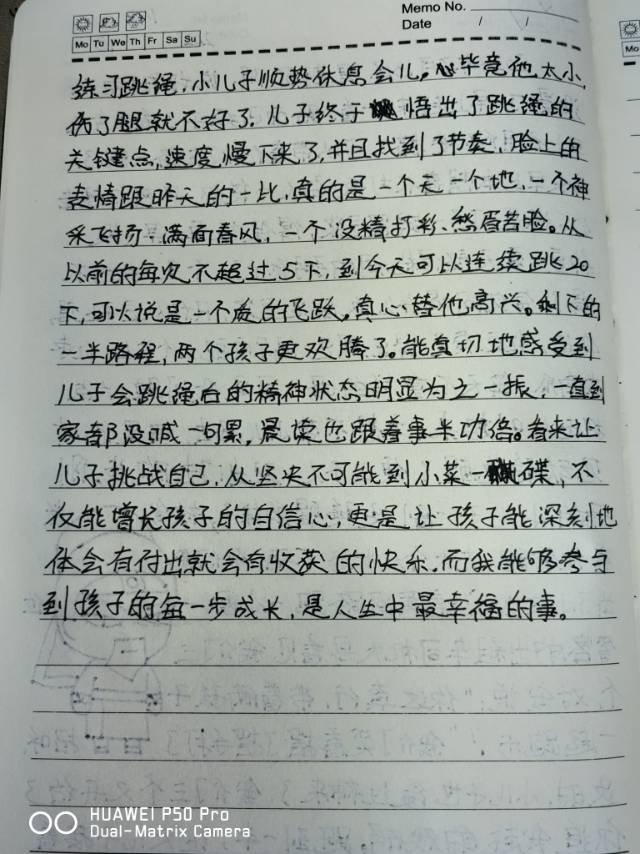 Memo No.
Date / /
Mo Tu We Th Fr Sa Su
练习跳绳,小儿子顺势休息会儿。毕竟他太小,
伤了腿就不好了.儿子终于悟出了跳绳的
关键点,速度慢下来了,并且找到了节奏,脸上的
表情跟昨天的一比,真的是一个天一个地,一个神
采飞扬.满面春风,一个没精打彩、愁眉苦脸。从
以前的每次不超过5下,到今天可以连续跳20
下,可以说是一个质的飞跃。真心替他高兴。剩下的
一半路程,两个孩子更欢腾了。能真切地感受到
儿子会跳绳后的精神状态明显为之一振,一直到
家都没喊一句累,晨读也跟着事半功倍。看来让
儿子挑战自己,从坚决不可能到小菜一碟,不
仅能增长孩子的自信心,更是让孩子能深刻地
体会有付出就会有收获的快乐.而我能够参与
到孩子的每一步成长,是人生中最幸福的事。
HUAWEI P50 Pro
Dual-Matrix Camera